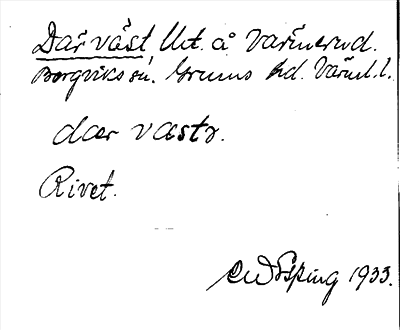 Där väst, Ut. å Värmerud.
Borgviks sn. Grums hd. Värml. l.
dær væstr.
Rivet.
Esping 1933.